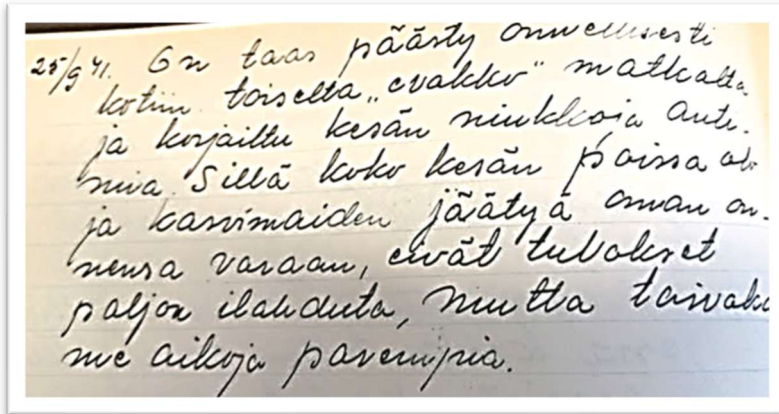 25/9 41. On taas päästy onnellisesti
kotiin toiselta "evakko" matkalta
ja korjailtu kesän niukkoja anti-
mia. Sillä koko kesän poissa olo
ja kasvimaiden jäätyä oman on-
nensa varaan, eivät tulokset
paljon ilahduta, mutta toivoka
me aikoja parempia.